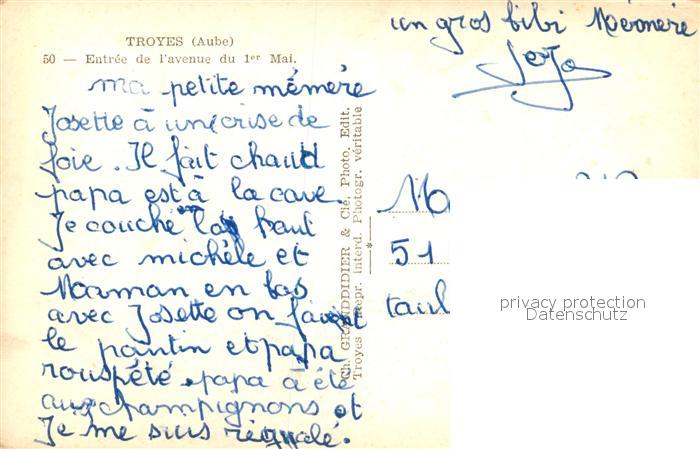 TROYES (Aube)
50 — Entrée de l'avenue du 1er Mai.
ma petite mémère
Josette à une crise de
foie. Il fait chaud
papa est à la cave.
Je couche la haut
avec michèle et
Maman en bas
avec Josette on faisait
le pantin et papa
rouspété. papa à été
aux champignons et
Je me suis régualé.
un gros bibi Mémère
JoJo
Ch. GRANDDIDIER & Cie, Photo. Edit.
Troyes Repr. interd. Photogr. véritable
51
privacy protection
Datenschutz